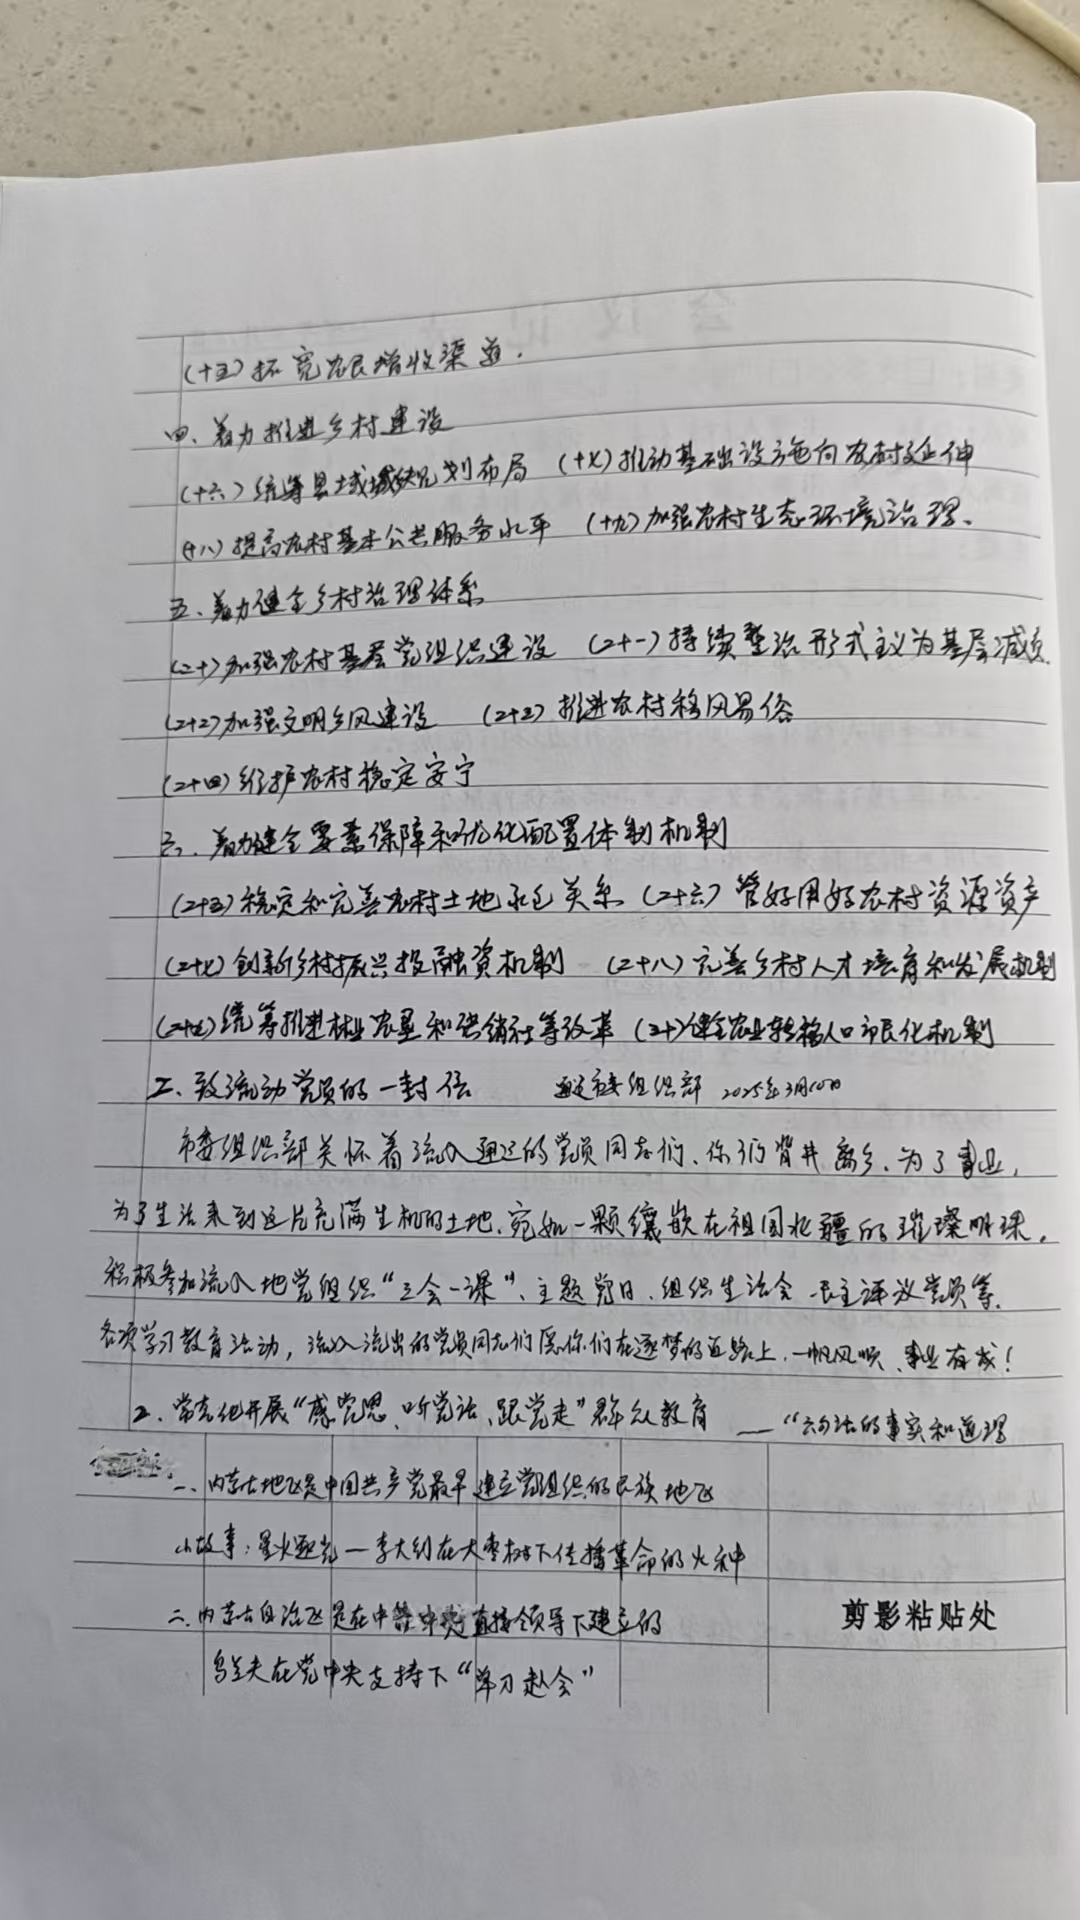 (十五)拓宽农民增收渠道.
四、着力推进乡村建设
(十六)统筹县域城乡规划布局 (十七)推动基础设施向农村延伸
(十八)提高农村基本公共服务水平 (十九)加强农村生态环境治理、
五、着力健全乡村治理体系
(二十)加强农村基层党组织建设 (二十一)持续整治形式主义为基层减负
(二十二)加强文明乡风建设 (二十三)推进农村移风易俗
(二十四)维护农村稳定安宁
六、着力健全要素保障和优化配置体制机制
(二十五)稳定和完善农村土地承包关系 (二十六)管好用好农村资源资产
(二十七)创新乡村振兴投融资机制 (二十八)完善乡村人才培育和发展机制
(二十九)统筹推进林业农垦和供销社等改革 (三十)健全农业转移人口市民化机制
二、致流动党员的一封信 通辽市委组织部 2025年3月10日
市委组织部关怀着流入通辽的党员同志们、你们背井离乡、为了事业,
为了生活来到这片充满生机的土地、宛如一颗镶嵌在祖国北疆的璀璨明珠,
积极参加流入地党组织“三会一课”、主题党日、组织生活会 民主评议党员等
各项学习教育活动,流入流出的党员同志们愿你们在逐梦的道路上,一帆风顺、事业有成!
2、常态化开展“感党恩、听党话、跟党走”群众教育 —— “六句话的事实和道理
一、内蒙古地区是中国共产党最早建立党组织的民族地区
小故事:星火逐光—李大钊在大枣树下传播革命的火种
二、内蒙古自治区是在中共中央直接领导下建立的
乌兰夫在党中央支持下“单刀赴会”
剪影粘贴处